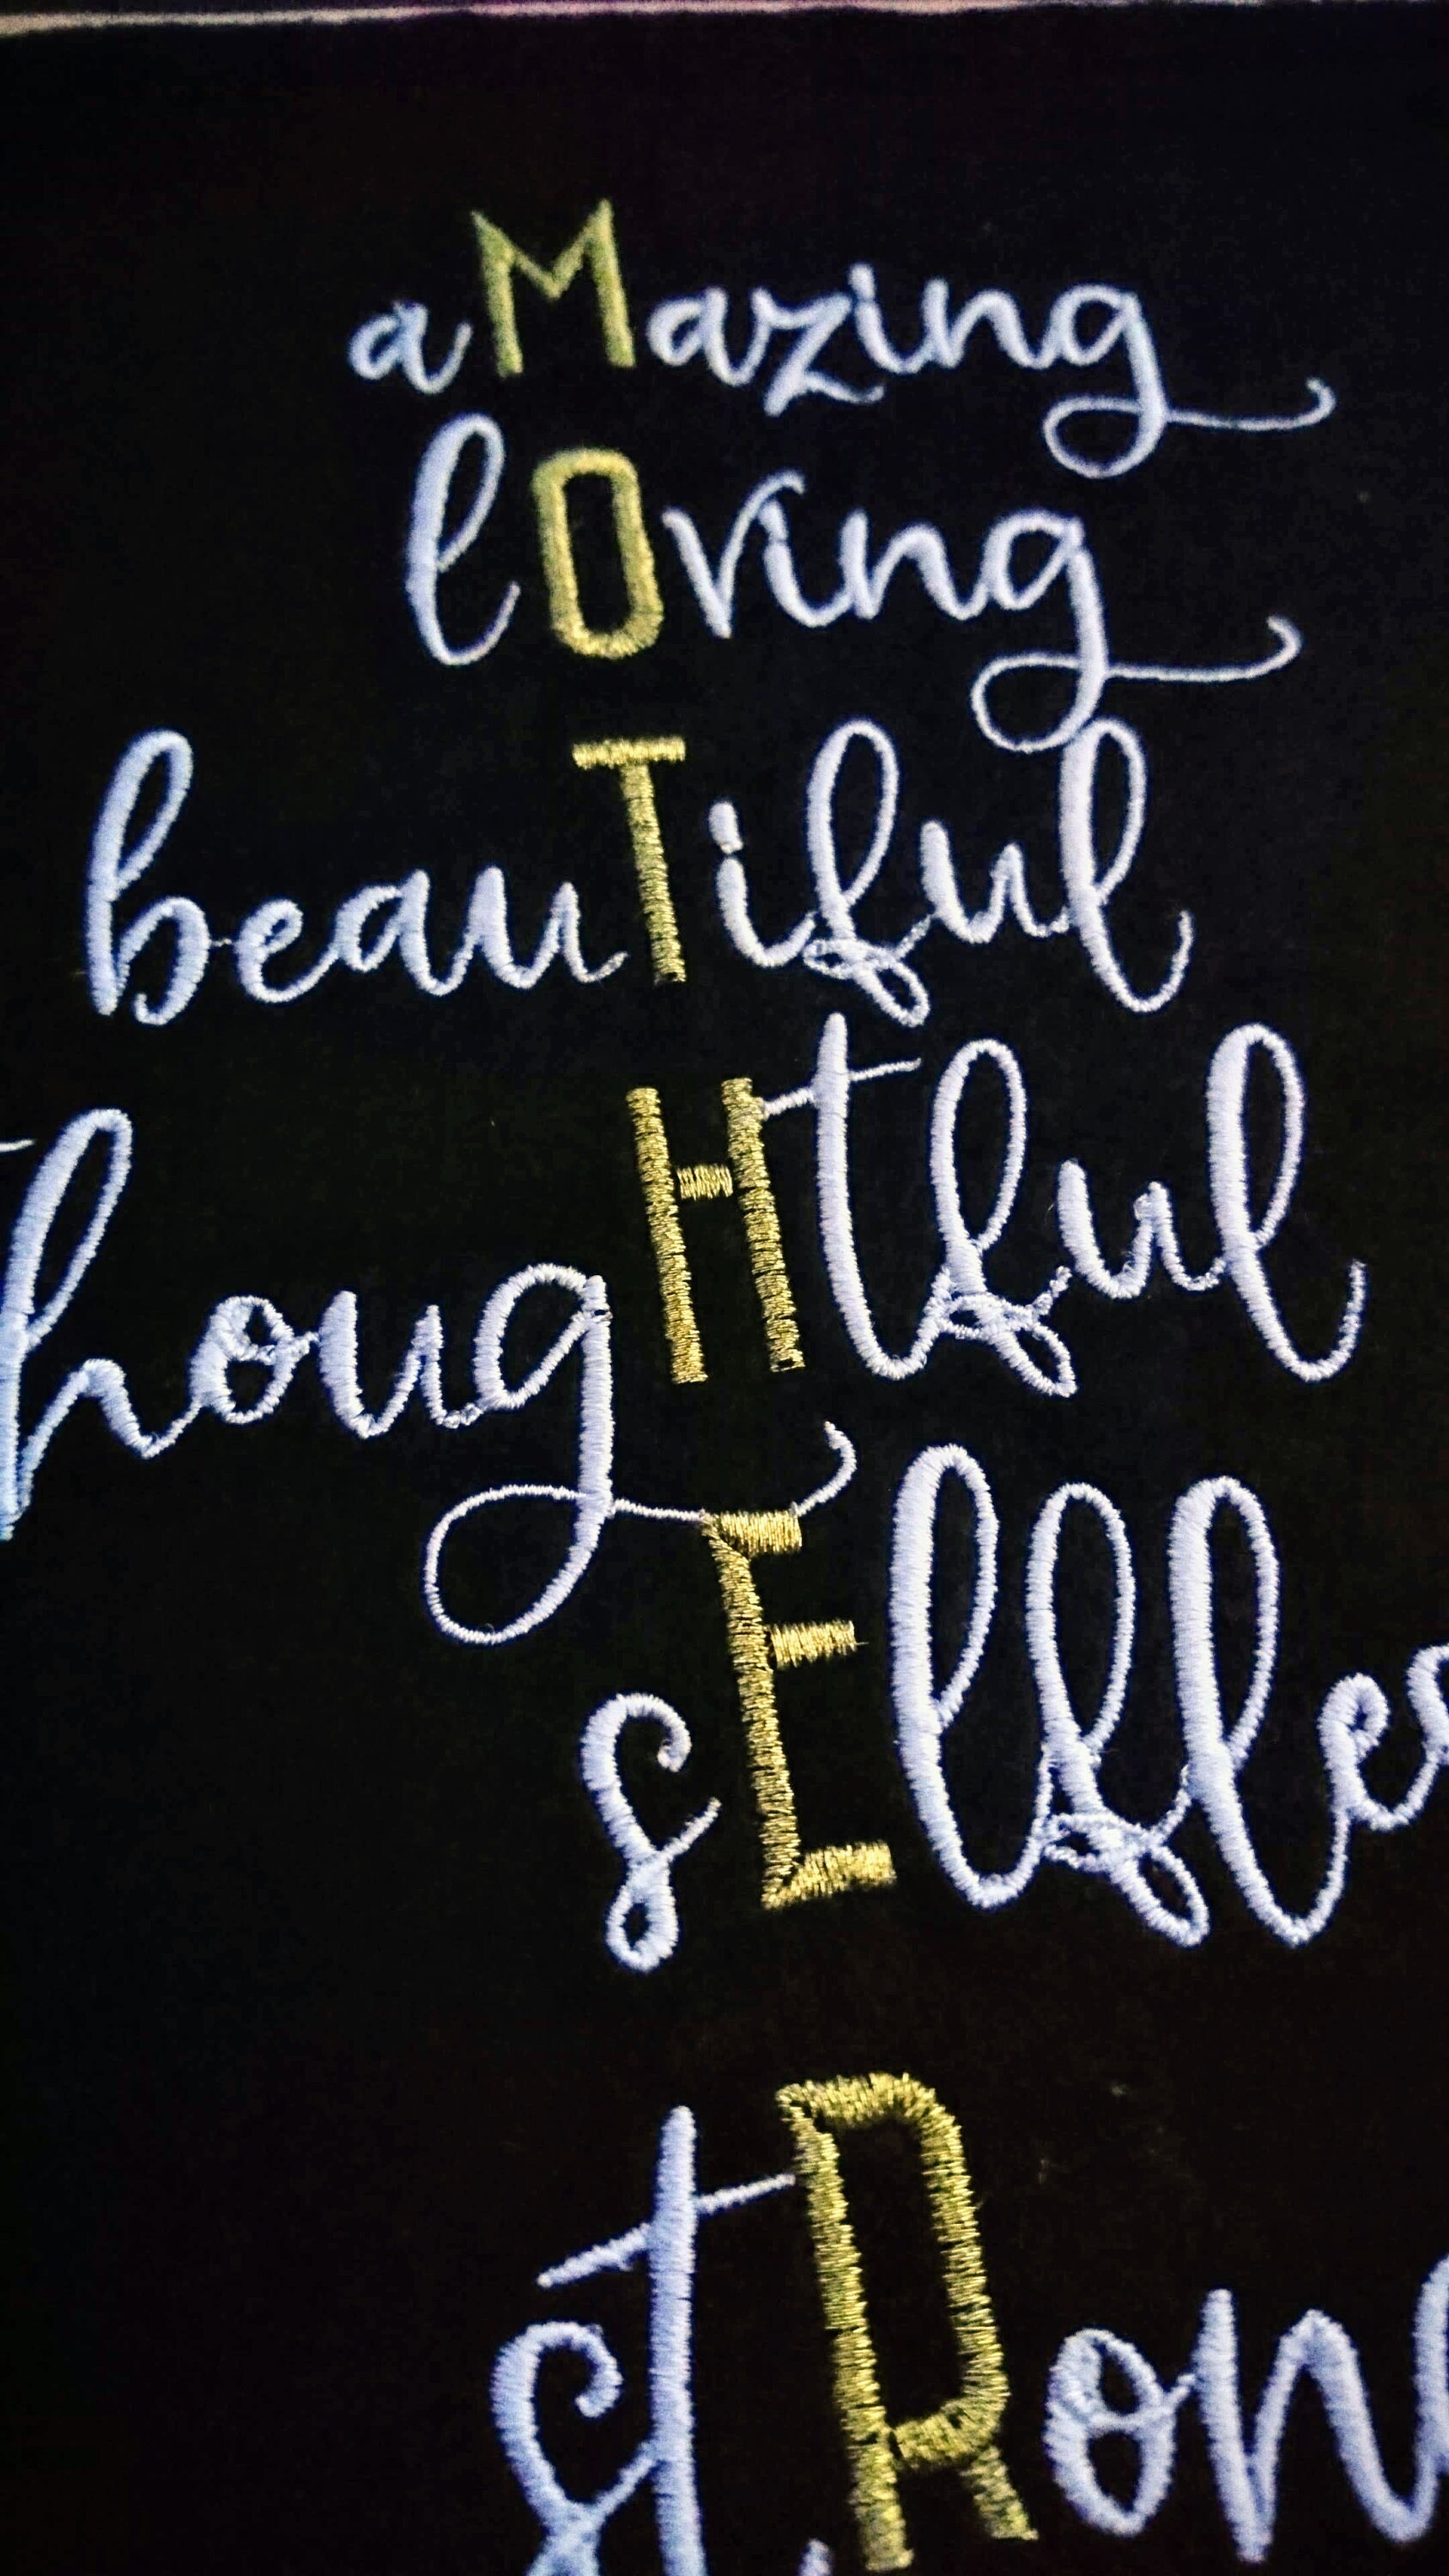 aMazing
lOving
beauTiful
thougHtful
sElfles
stRong